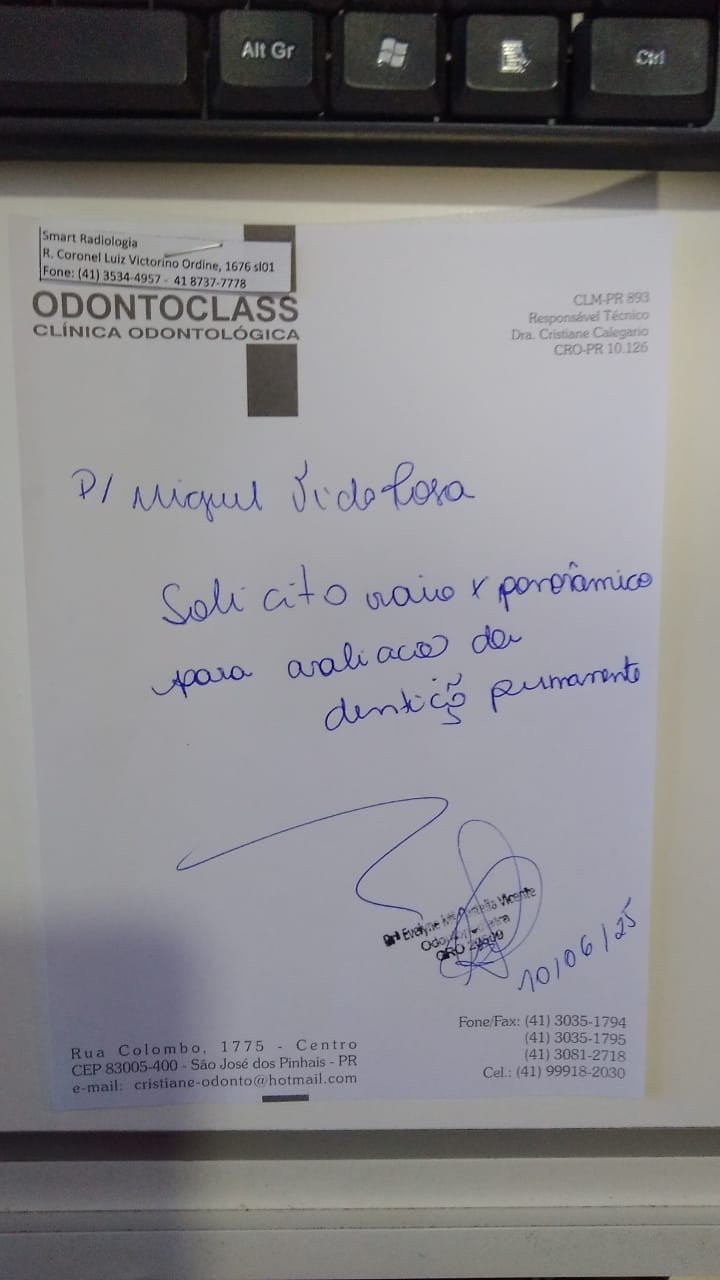 Alt Gr
Ctrl
Smart Radiologia
R. Coronel Luiz Victorino Ordine, 1676 sl01
Fone: (41) 3534-4957 - 41 8737-7778
ODONTOCLASS
CLÍNICA ODONTOLÓGICA
CLM-PR 893
Responsável Técnico
Dra. Cristiane Calegario
CRO-PR 10.126
P/ Miguel Vidal Rosa
Solicito raio x panorâmico
para avaliacao da
dentição permanente
Evelyne Vicente
CRO
10/06/25
Rua Colombo, 1775 - Centro
CEP 83005-400 - São José dos Pinhais - PR
e-mail: cristiane-odonto@hotmail.com
Fone/Fax: (41) 3035-1794
(41) 3035-1795
(41) 3081-2718
Cel.: (41) 99918-2030